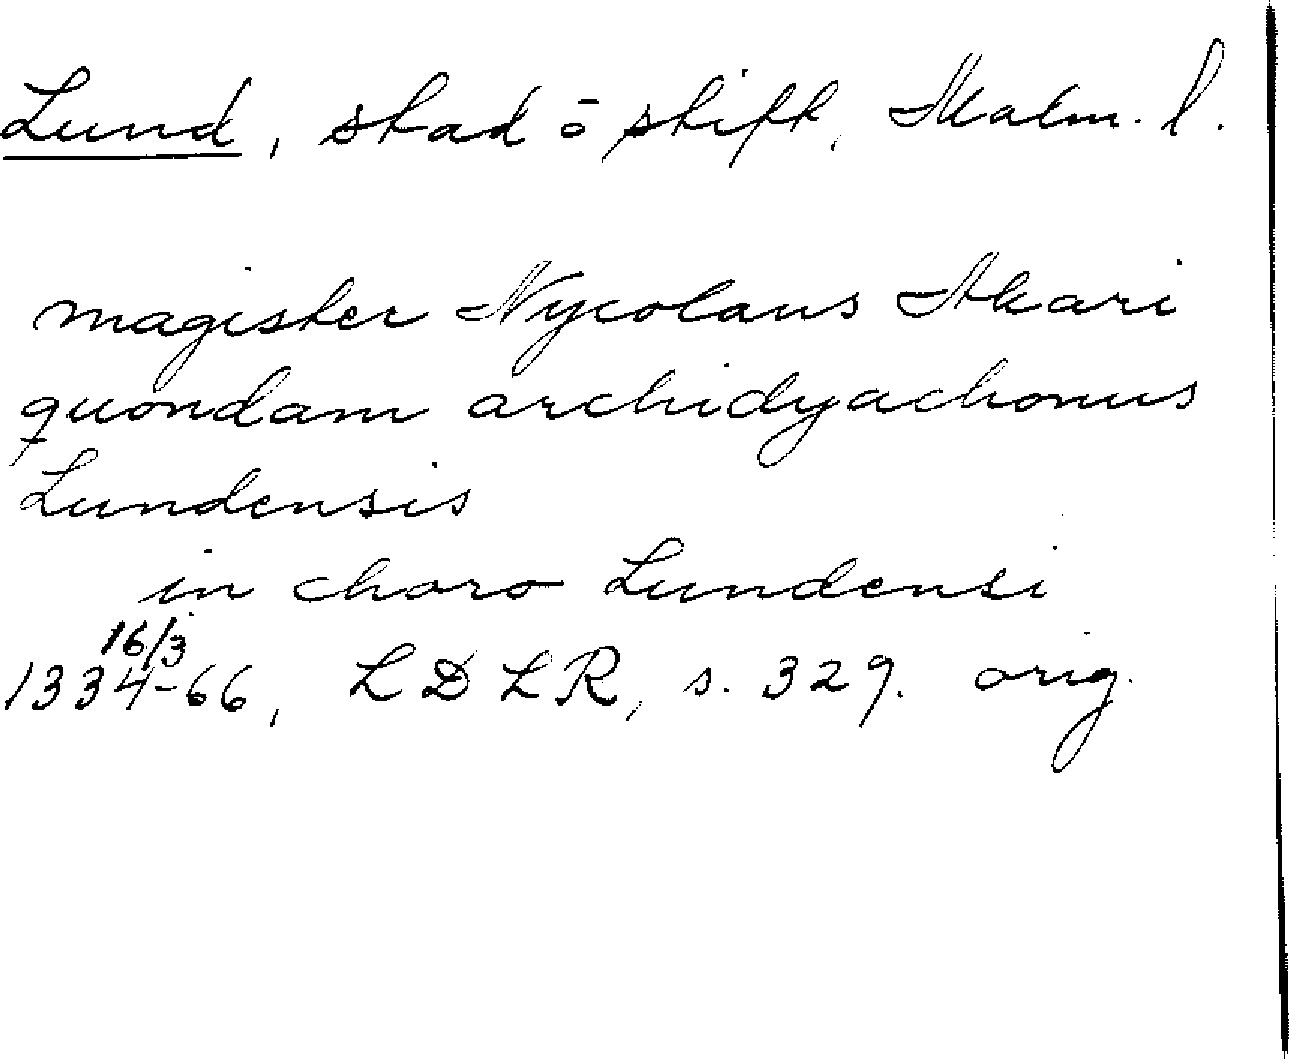 Lund, stad o stift, Malm. l.
magister Nycolaus
quondam archidyachonus
Lundensis
in choro Lundensi
16/3
1334-66, LDLR, s. 329. orig.